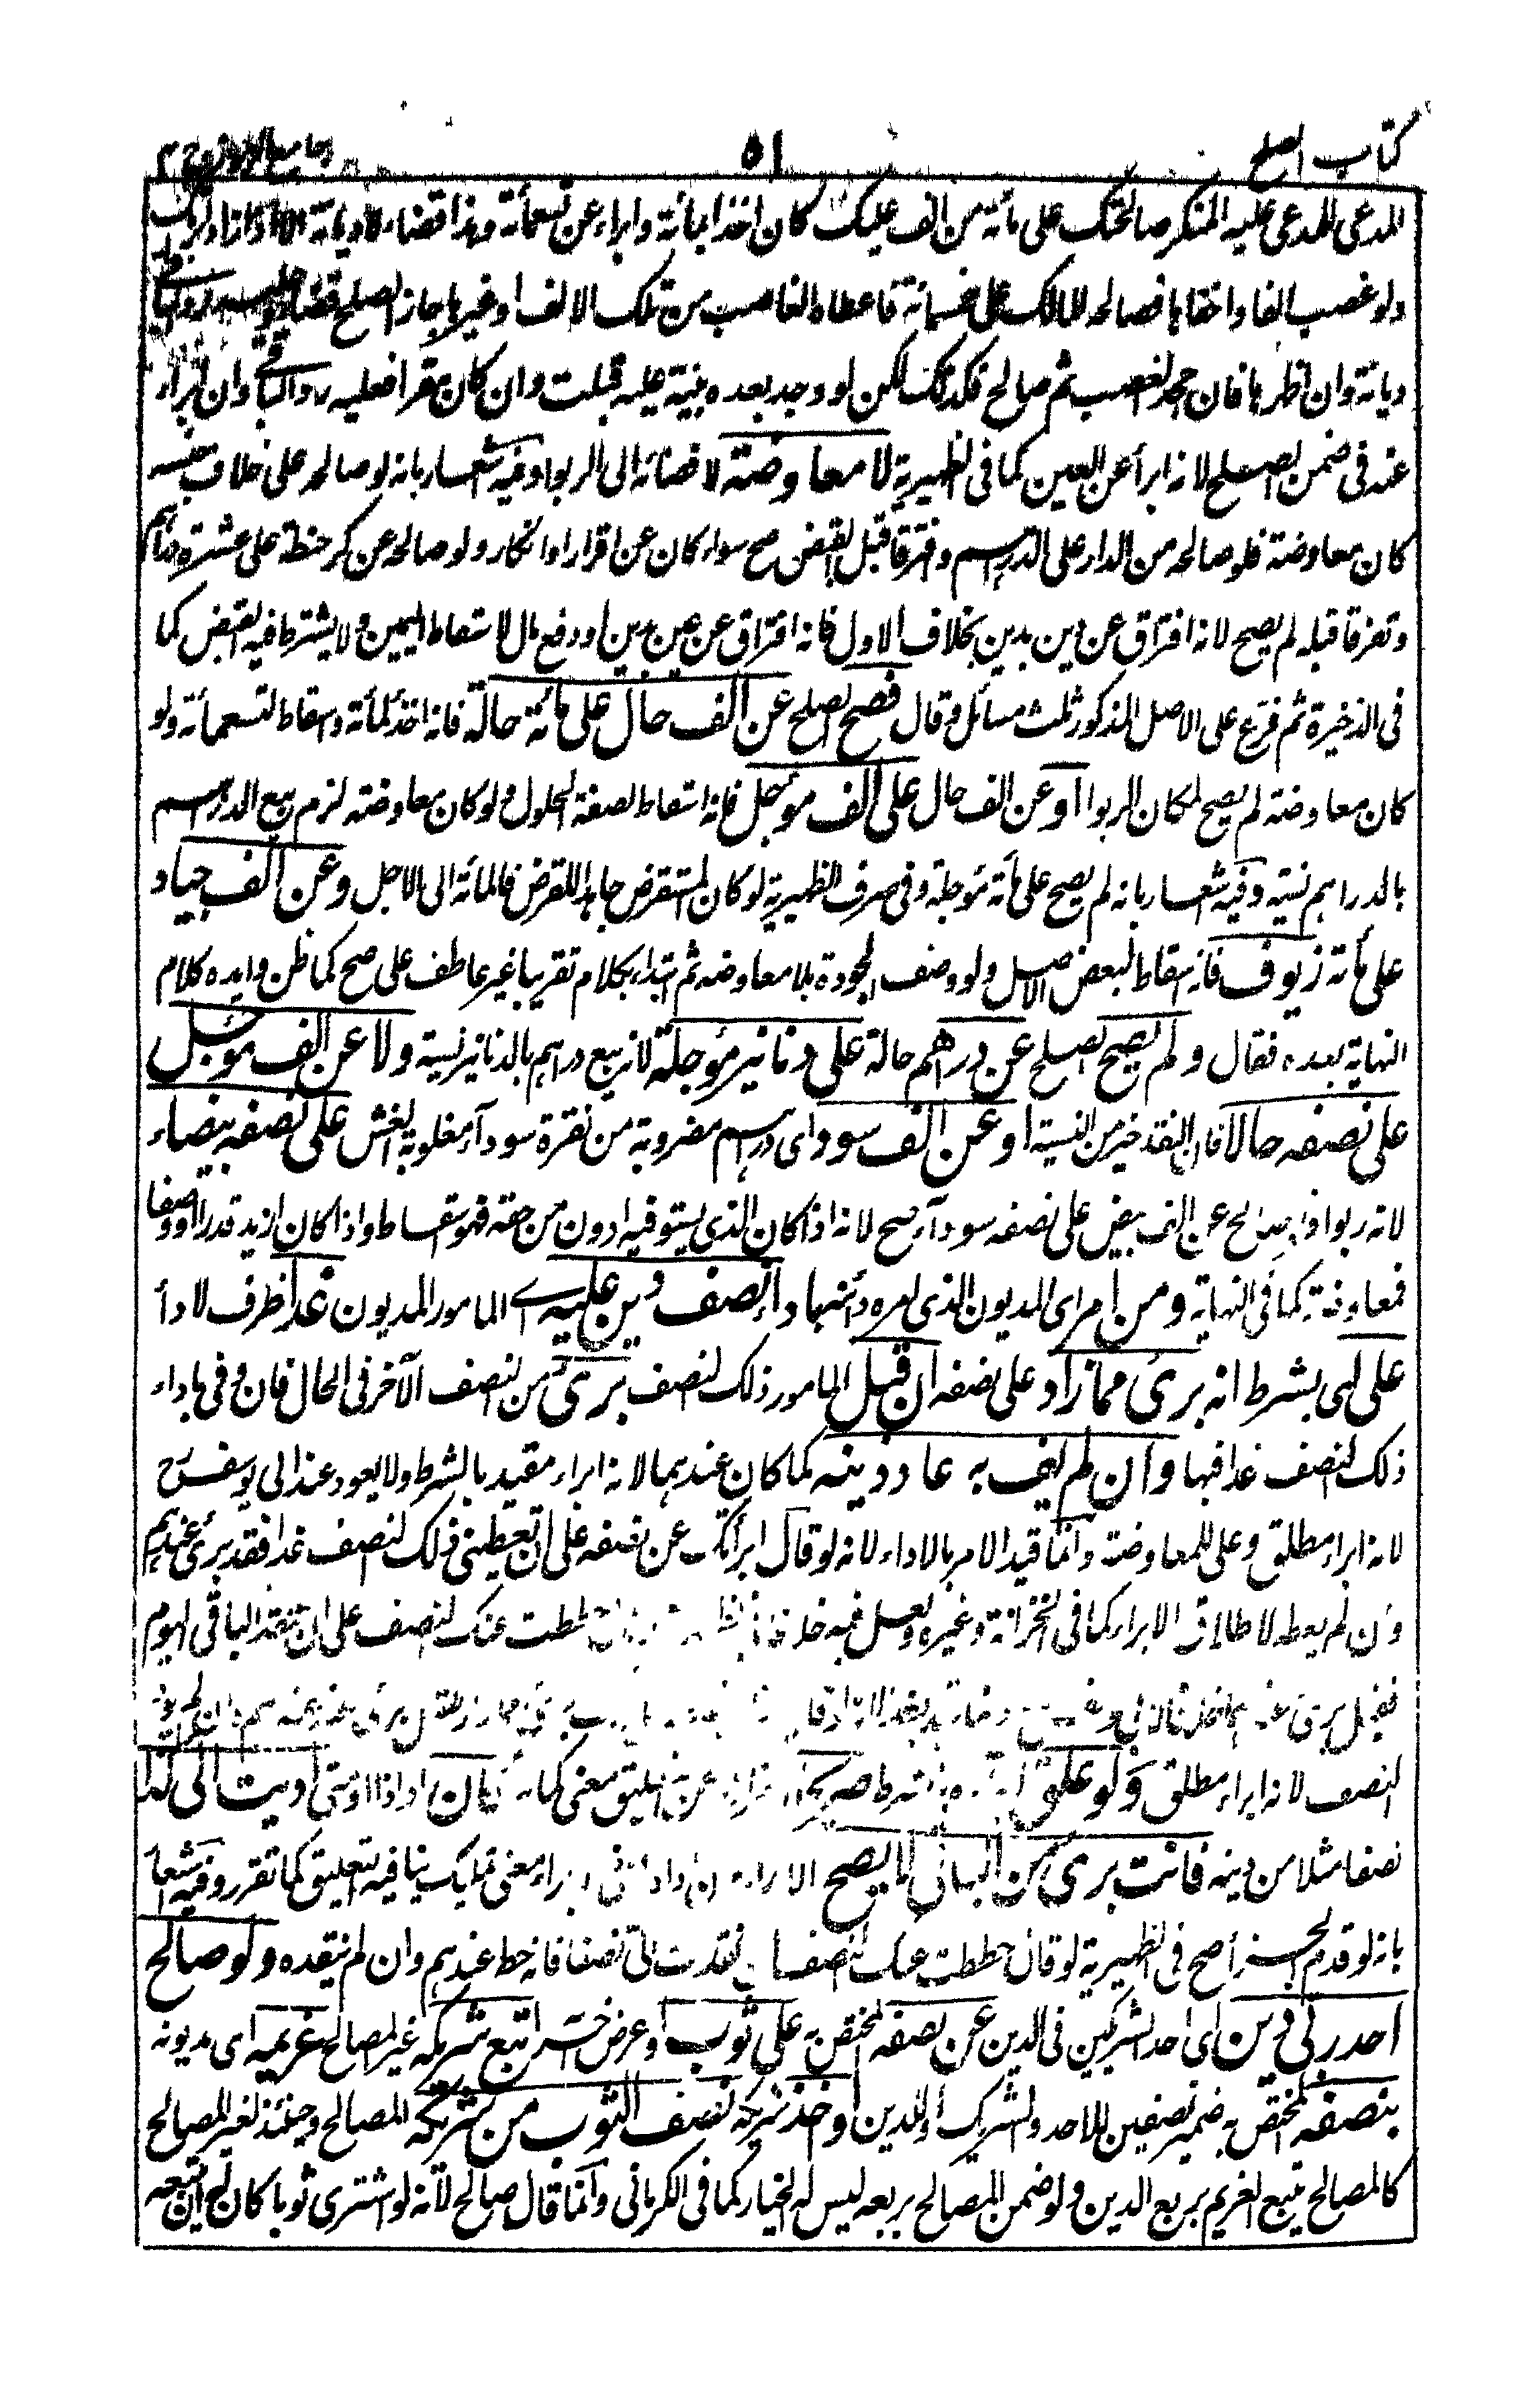 كتاب الصلح ٥١ جامع الرموز ج ٢
المدعى للمدعى عليه المنكر صالحتك على مأته من الف عليك كان اخذا بمأته وابراء عن تسعمأته وهذا قضاء لا ديانة الا اذا زاد
ولو غصب الفا واخفاها فصالحه المالك على خمسمائة فاعطاه الغاصب من تلك الالف او غيرها جاز الصلح قضاء
ديانة وان اظهرها فان جحد الغصب ثم صالح فكذلك لكن لو وجد بعده بينة عليه قبلت وان كان مقرا فعليه رد الباقى وان ابراء
عنه فى ضمن الصلح لانه ابرأ عن العين كما فى الظهيرية لا معاوضة لافضائه الى الربوا وفيه اشعار بانه لو صالحه على خلاف جنسه
كان معاوضة فلو صالحه من الدار على الدراهم وافترقا قبل القبض صح سواء كان عن اقرار او انكار ولو صالحه عن كر حنطة على عشرة دراهم
وتفرقا قبله لم يصح لانه افتراق عن دين بدين بخلاف الاول فانه افتراق عن عين بدين او دفع مال لاسقاط اليمين ولا يشترط فيه القبض كما
فى الذخيرة ثم فرع على الاصل المذكور ثلث مسائل وقال فصح الصلح عن الف حال على مائة حالة فانه اخذ لمأته واسقاط لتسعمأته ولو
كان معاوضة لم يصح لمكان الربوا او عن الف حال على الف مؤجل فانه اسقاط لصفة الحلول ولو كان معاوضة لزم بيع الدراهم
بالدراهم نسية وفيه اشعار بانه لم يصح على مأته مؤجلة وفى صرف الظهيرية لو كان المستقرض جاحدا للقرض فالمائة الى الاجل وعن الف جياد
على مأته زيوف فانه اسقاط لبعض الاصل ولوصف الجودة بلا معاوضة ثم ابتداء بكلام تقريبا غير عاطف على صح كما ظن وايده كلام
النهاية بعده فقال ولم يصح الصلح عن دراهم حالة على دنانير مؤجلة لانه بيع دراهم بالدنانير نسية ولا عن الف مؤجل
على نصفه حالا فان النقد خير من النسية او عن الف سود اى دراهم مضروبة من نقرة سوداء مغلوبة الغش على نصفه بيضاء
لانه ربوا ولو صالح عن الف بيض على نصفه سوداء صح لانه اذا كان الذى يستوفيه ادون من حقه فهو اسقاط واذا كان ازيد قدرا او وصفا
فمعاوضة كما فى النهاية ومن امر اى المديون الذى امره دائنه باداء نصف دين عليه اى المامور المديون غدا ظرف لاداء
على انى بشرط انه برئ مما زاد على نصفه ان قبل المامور ذلك النصف برئ من النصف الآخر فى الحال فان وفى باداء
ذلك النصف غدا فبها وان لم يف به عاد دينه كما كان عندهما لانه ابراء مقيد بالشرط ولا يعود عند ابى يوسف رح
لانه ابراء مطلق وعلى للمعاوضة وانما قيد الامر بالاداء لانه لو قال ابرأتك عن نصفه على ان تعطينى ذلك النصف غدا فقد برئ عندهم
وان لم يعط لاطلاق الابراء كما فى الخزانة وغيره ولعل فيه خلافا حططت عنك النصف على ان تنقد الباقى اليوم
فقبل برئ
النصف لانه ابراء مطلق ولو علق شرط صريحا معنى كما اذا او متى اديت الى غدا
نصفا مثلا من دينه فانت برئ من الباقى لا يصح الابراء معنى تمليك ينافيه التعليق كما تقرر وفيه اشعار
بانه لو قدم الجزاء صح فى الظهيرية لو قال حططت عنك النصف ان نقدت الى نصفا فانه حط عندهم وان لم ينقده ولو صالح
احد ربى دين اى احد الشريكين فى الدين عن نصفه المختص به على ثوب او عرض آخر اتبع شريكه غير المصالح غريمه اى مديونه
بنصفه المختص به ضمير نصفين للاحد والشريك او للدين او اخذ شريكه نصف الثوب من شريكه المصالح وحينئذ لغير المصالح
كالمصالح يتبع الغريم بربع الدين ولو ضمن المصالح بربعه ليس له الخيار كما فى الكرمانى وانما قال صالح لانه لو اشترى ثوبا كان له ان يتبعه